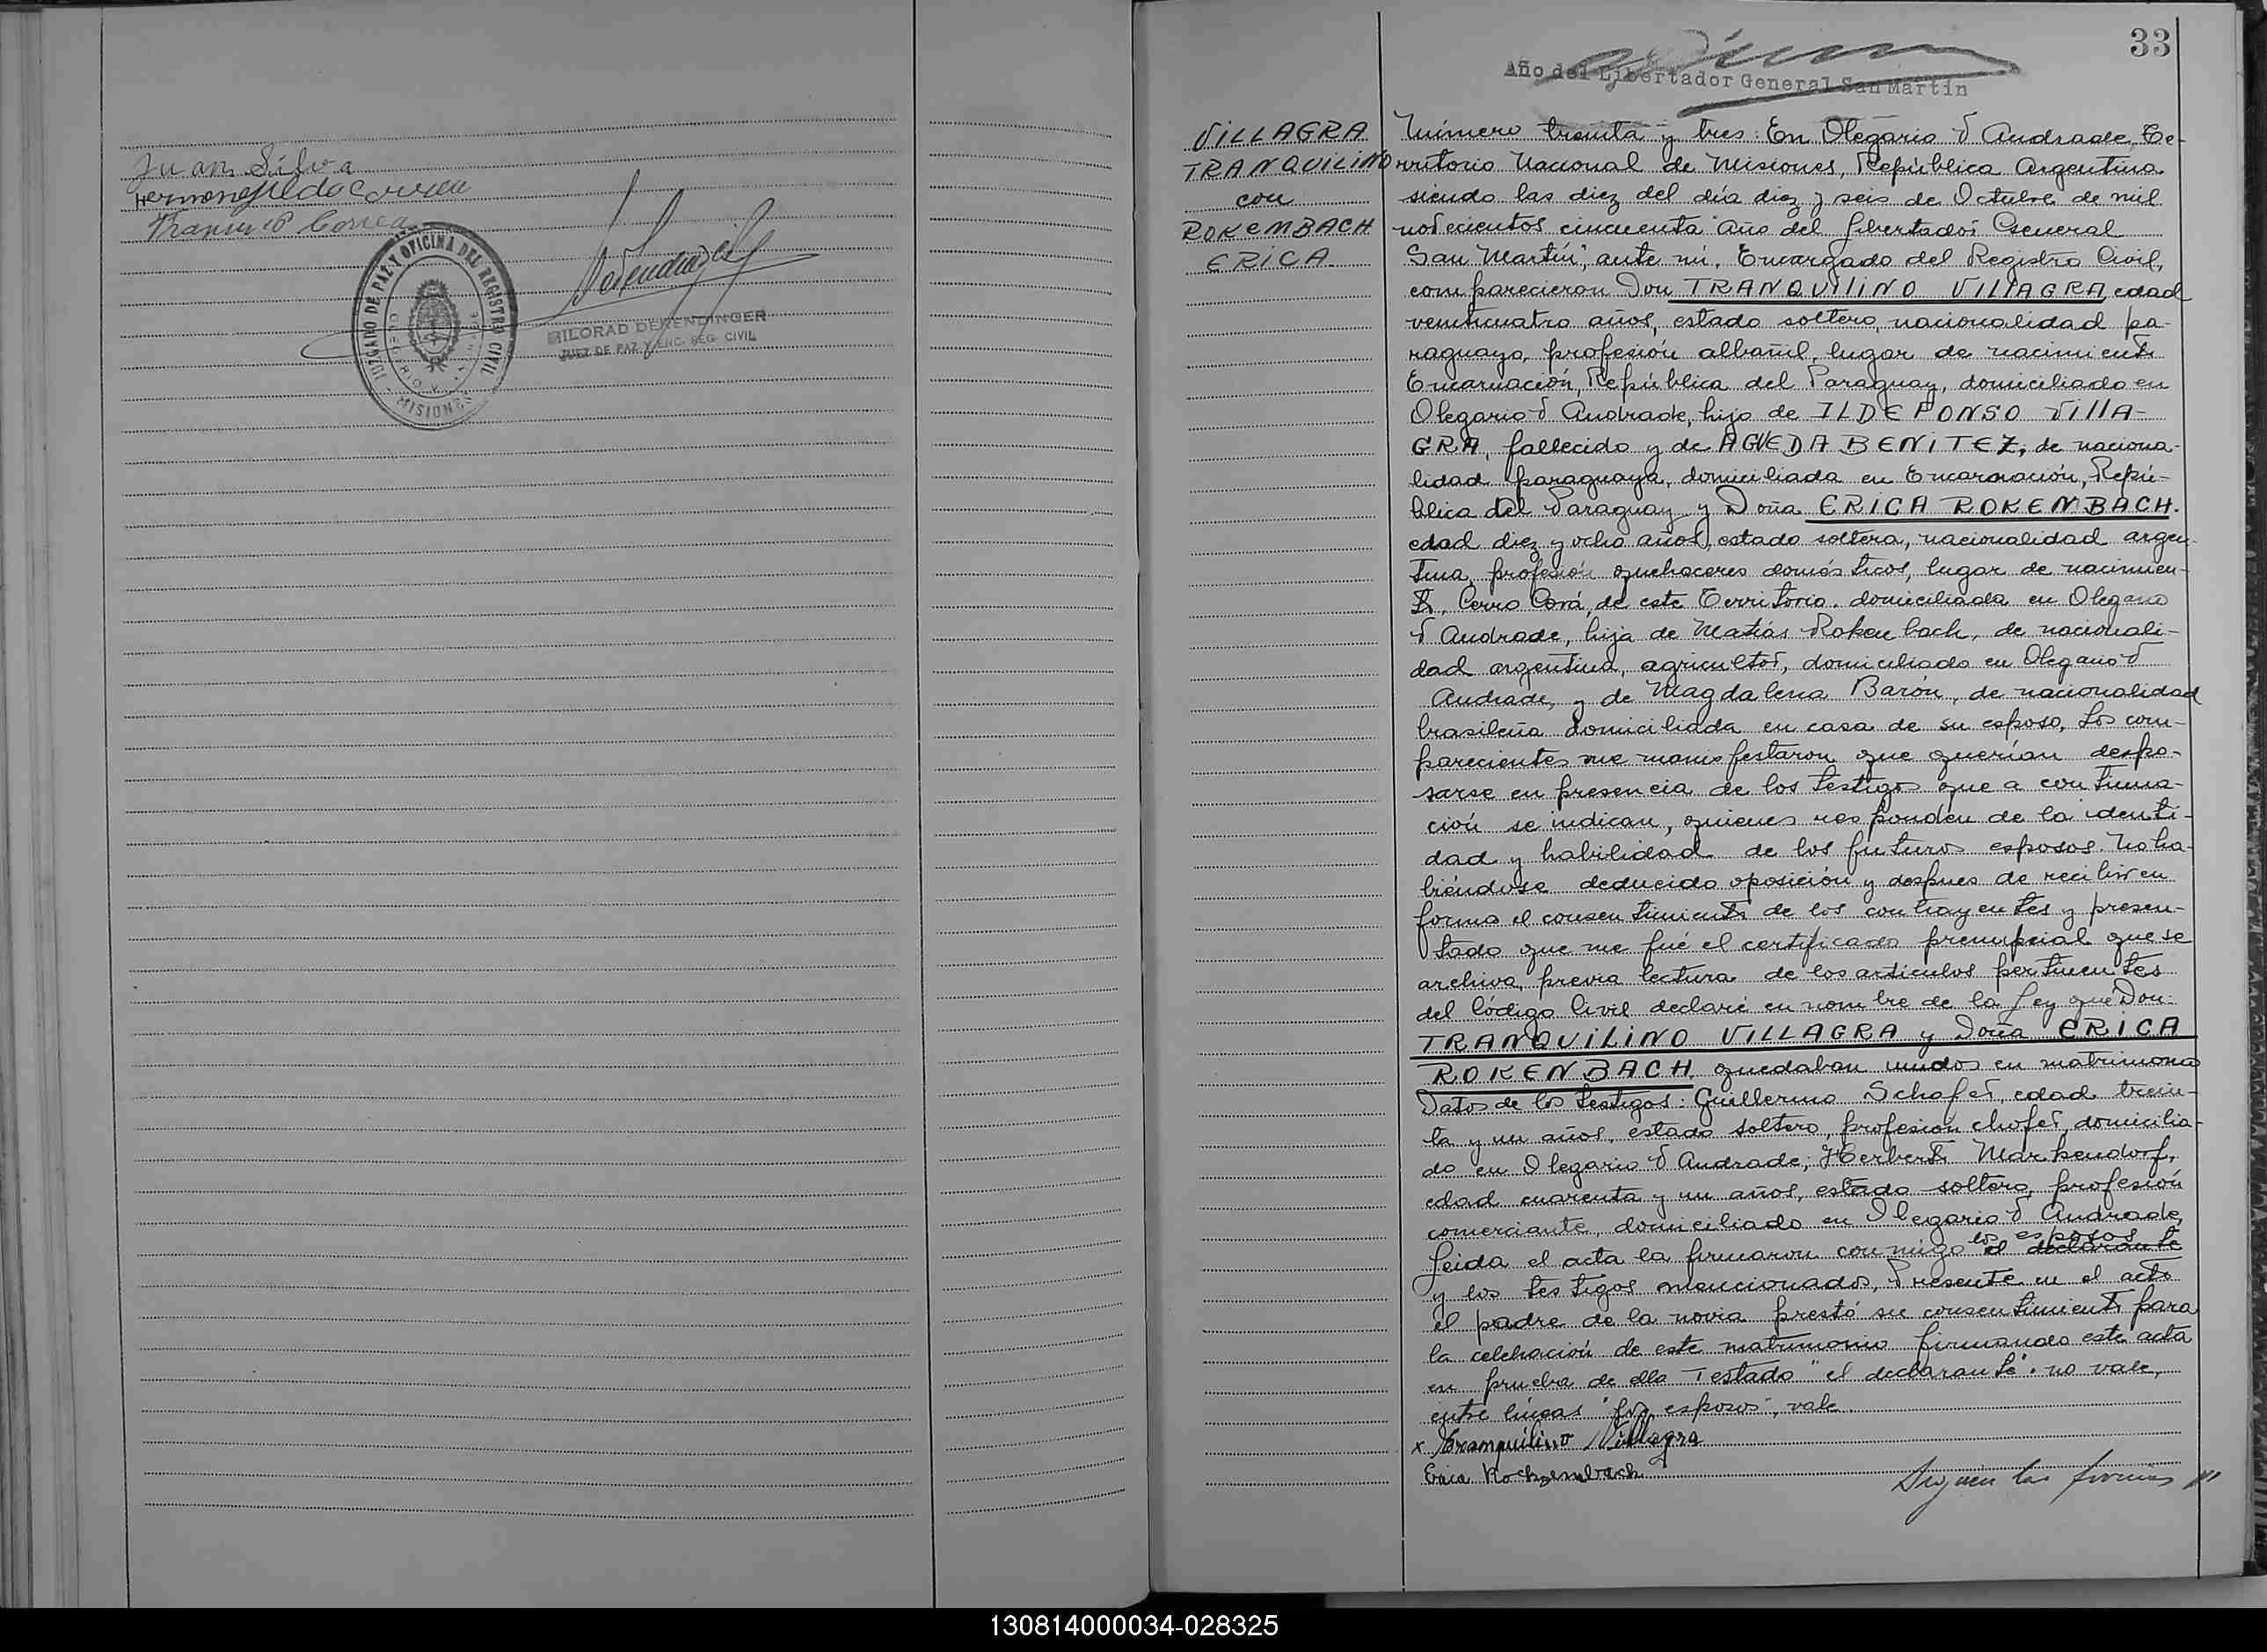 Juan Silva
Hermenegildo Correa
JUZGADO DE PAZ Y OFICINA DEL REGISTRO CIVIL
MISIONES
MILORAD DERENDINGER
JUEZ DE PAZ Y ENC. REG. CIVIL
33
Año del Libertador General San Martín
VILLAGRA
TRANQUILINO
con
ROKEMBACH
ERICA.
Número treinta y tres: En Olegario V Andrade, Te-
rritorio Nacional de Misiones, República Argentina.
siendo las diez del día diez y seis de Octubre de mil
novecientos cincuenta "Año del Libertador General
San Martín", ante mí, Encargado del Registro Civil,
comparecieron Don TRANQUILINO VILLAGRA, edad
veinticuatro años, estado soltero, nacionalidad pa-
raguayo, profesión albañil, lugar de nacimiento
Encarnación, República del Paraguay, domiciliado en
Olegario V Andrade, hijo de ILDEFONSO VILLA-
GRA, fallecido y de AGUEDA BENITEZ, de naciona-
lidad paraguaya, domiciliada en Encarnación, Repú-
blica del Paraguay y Doña ERICA ROKEMBACH.
edad diez y ocho años, estado soltera, nacionalidad argen-
tina, profesión quehaceres domésticos, lugar de nacimien-
to, Cerro Corá, de este Territorio, domiciliada en Olegario
V Andrade, hija de Matías Rokenbach, de nacionali-
dad argentina, agricultor, domiciliado en Olegario V
Andrade, y de Magdalena Barón, de nacionalidad
brasileña domiciliada en casa de su esposo, Los com-
parecientes me manifestaron que querían despo-
sarse en presencia de los testigos que a continua-
ción se indican, quienes responden de la identi-
dad y habilidad de los futuros esposos. No ha-
biéndose deducido oposición y despues de recibir en
forma el consentimiento de los contrayentes y presen-
tado que me fué el certificado prenupcial que se
archiva, previa lectura de los artículos pertinentes
del Código Civil declaré en nombre de la Ley que Don
TRANQUILINO VILLAGRA y Doña ERICA
ROKENBACH, quedaban unidos en matrimonio
Datos de los testigos: Guillermo Schafer, edad trein-
ta y un años, estado soltero, profesión chofer, domicilia-
do en Olegario V Andrade; Herberto Markendorf,
edad cuarenta y un años, estado soltero, profesión
comerciante, domiciliado en Olegario V Andrade,
los esposos
Leida el acta la firmaron conmigo el declarante
y los testigos mencionados, Presente en el acto
el padre de la novia prestó su consentimiento para
la celebración de este matrimonio firmando este acta
en prueba de ello Testado "el declarante". no vale,
entre líneas "los esposos", vale.
x Tranquilino Villagra
Erica Rockzembach
Siguen las firmas ///
130814000034-028325